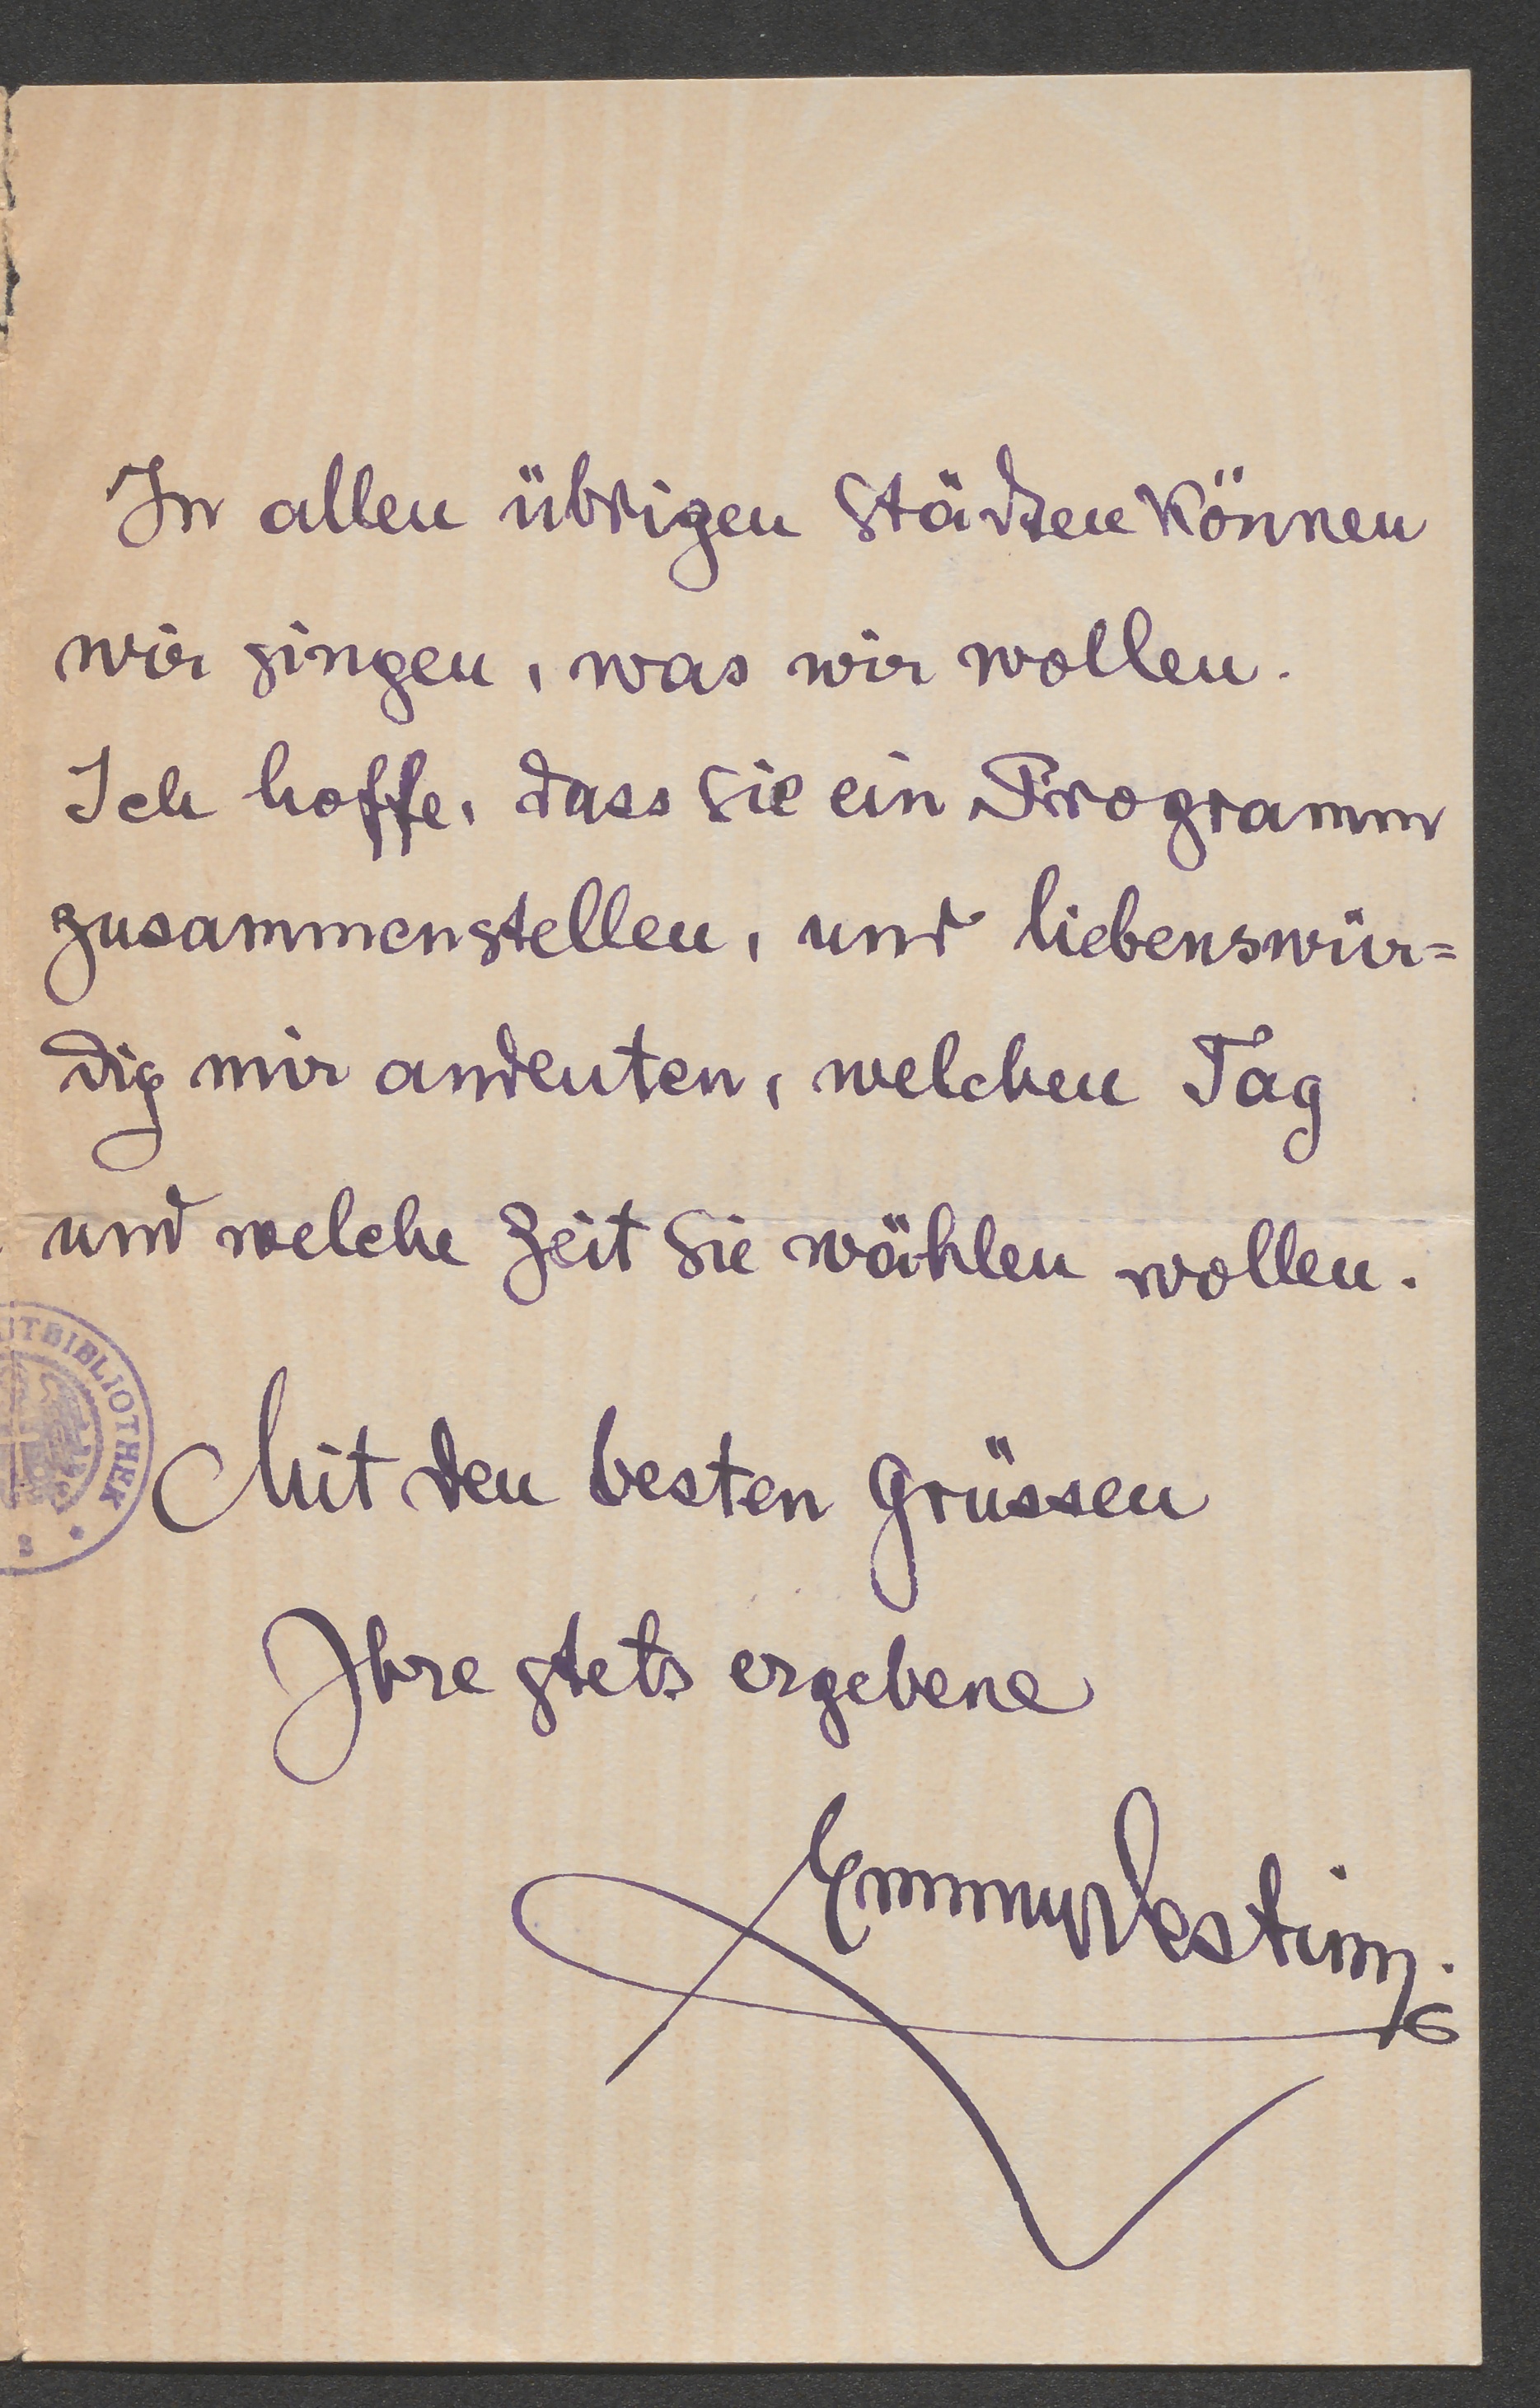 In allen übrigen Städten können
wir singen, was wir wollen.
Ich hoffe, dass Sie ein Programm
zusammenstellen, und liebenswür=
dig mir andeuten, welchen Tag
und welche Zeit Sie wählen wollen.
TBIBLIOTHEK
Mit den besten Grüssen
Ihre stets ergebene
EmmyDestinn.